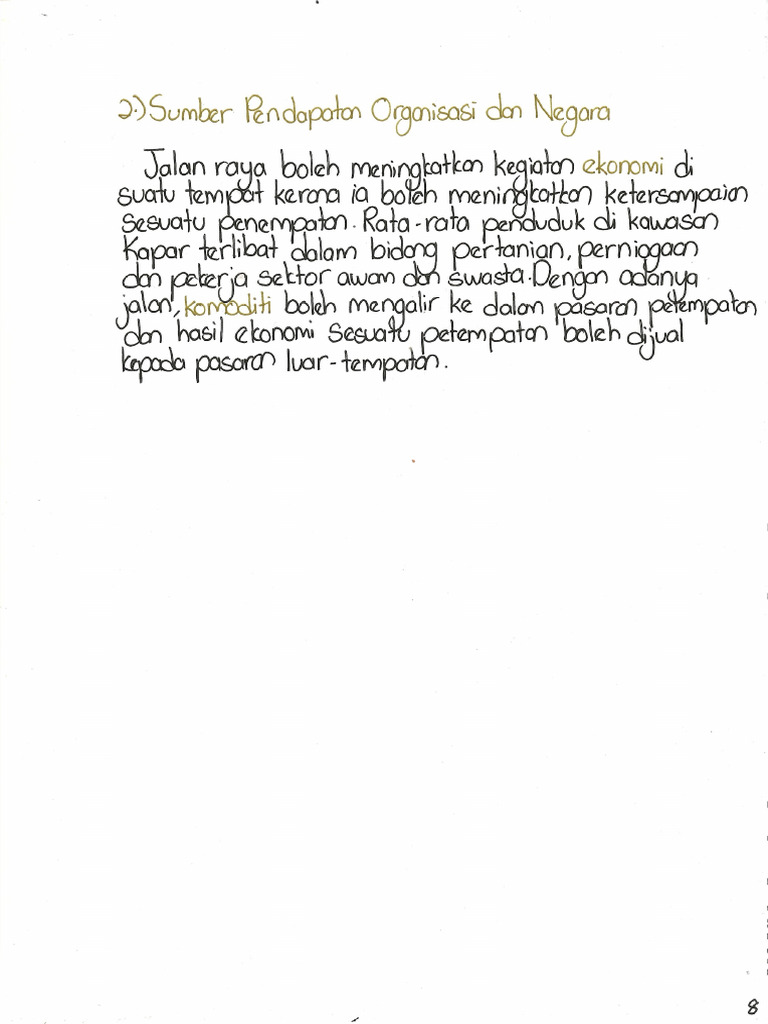 2.) Sumber Pendapatan Organisasi dan Negara
Jalan raya boleh meningkatkan kegiatan ekonomi di
suatu tempat kerana ia boleh meningkatkan ketersampaian
sesuatu penempatan. Rata-rata penduduk di kawasan
Kapar terlibat dalam bidang pertanian, perniagaan
dan pekerja sektor awam dan swasta. Dengan adanya
jalan, komoditi boleh mengalir ke dalam pasaran petempatan
dan hasil ekonomi sesuatu petempatan boleh dijual
kepada pasaran luar-tempatan.
8